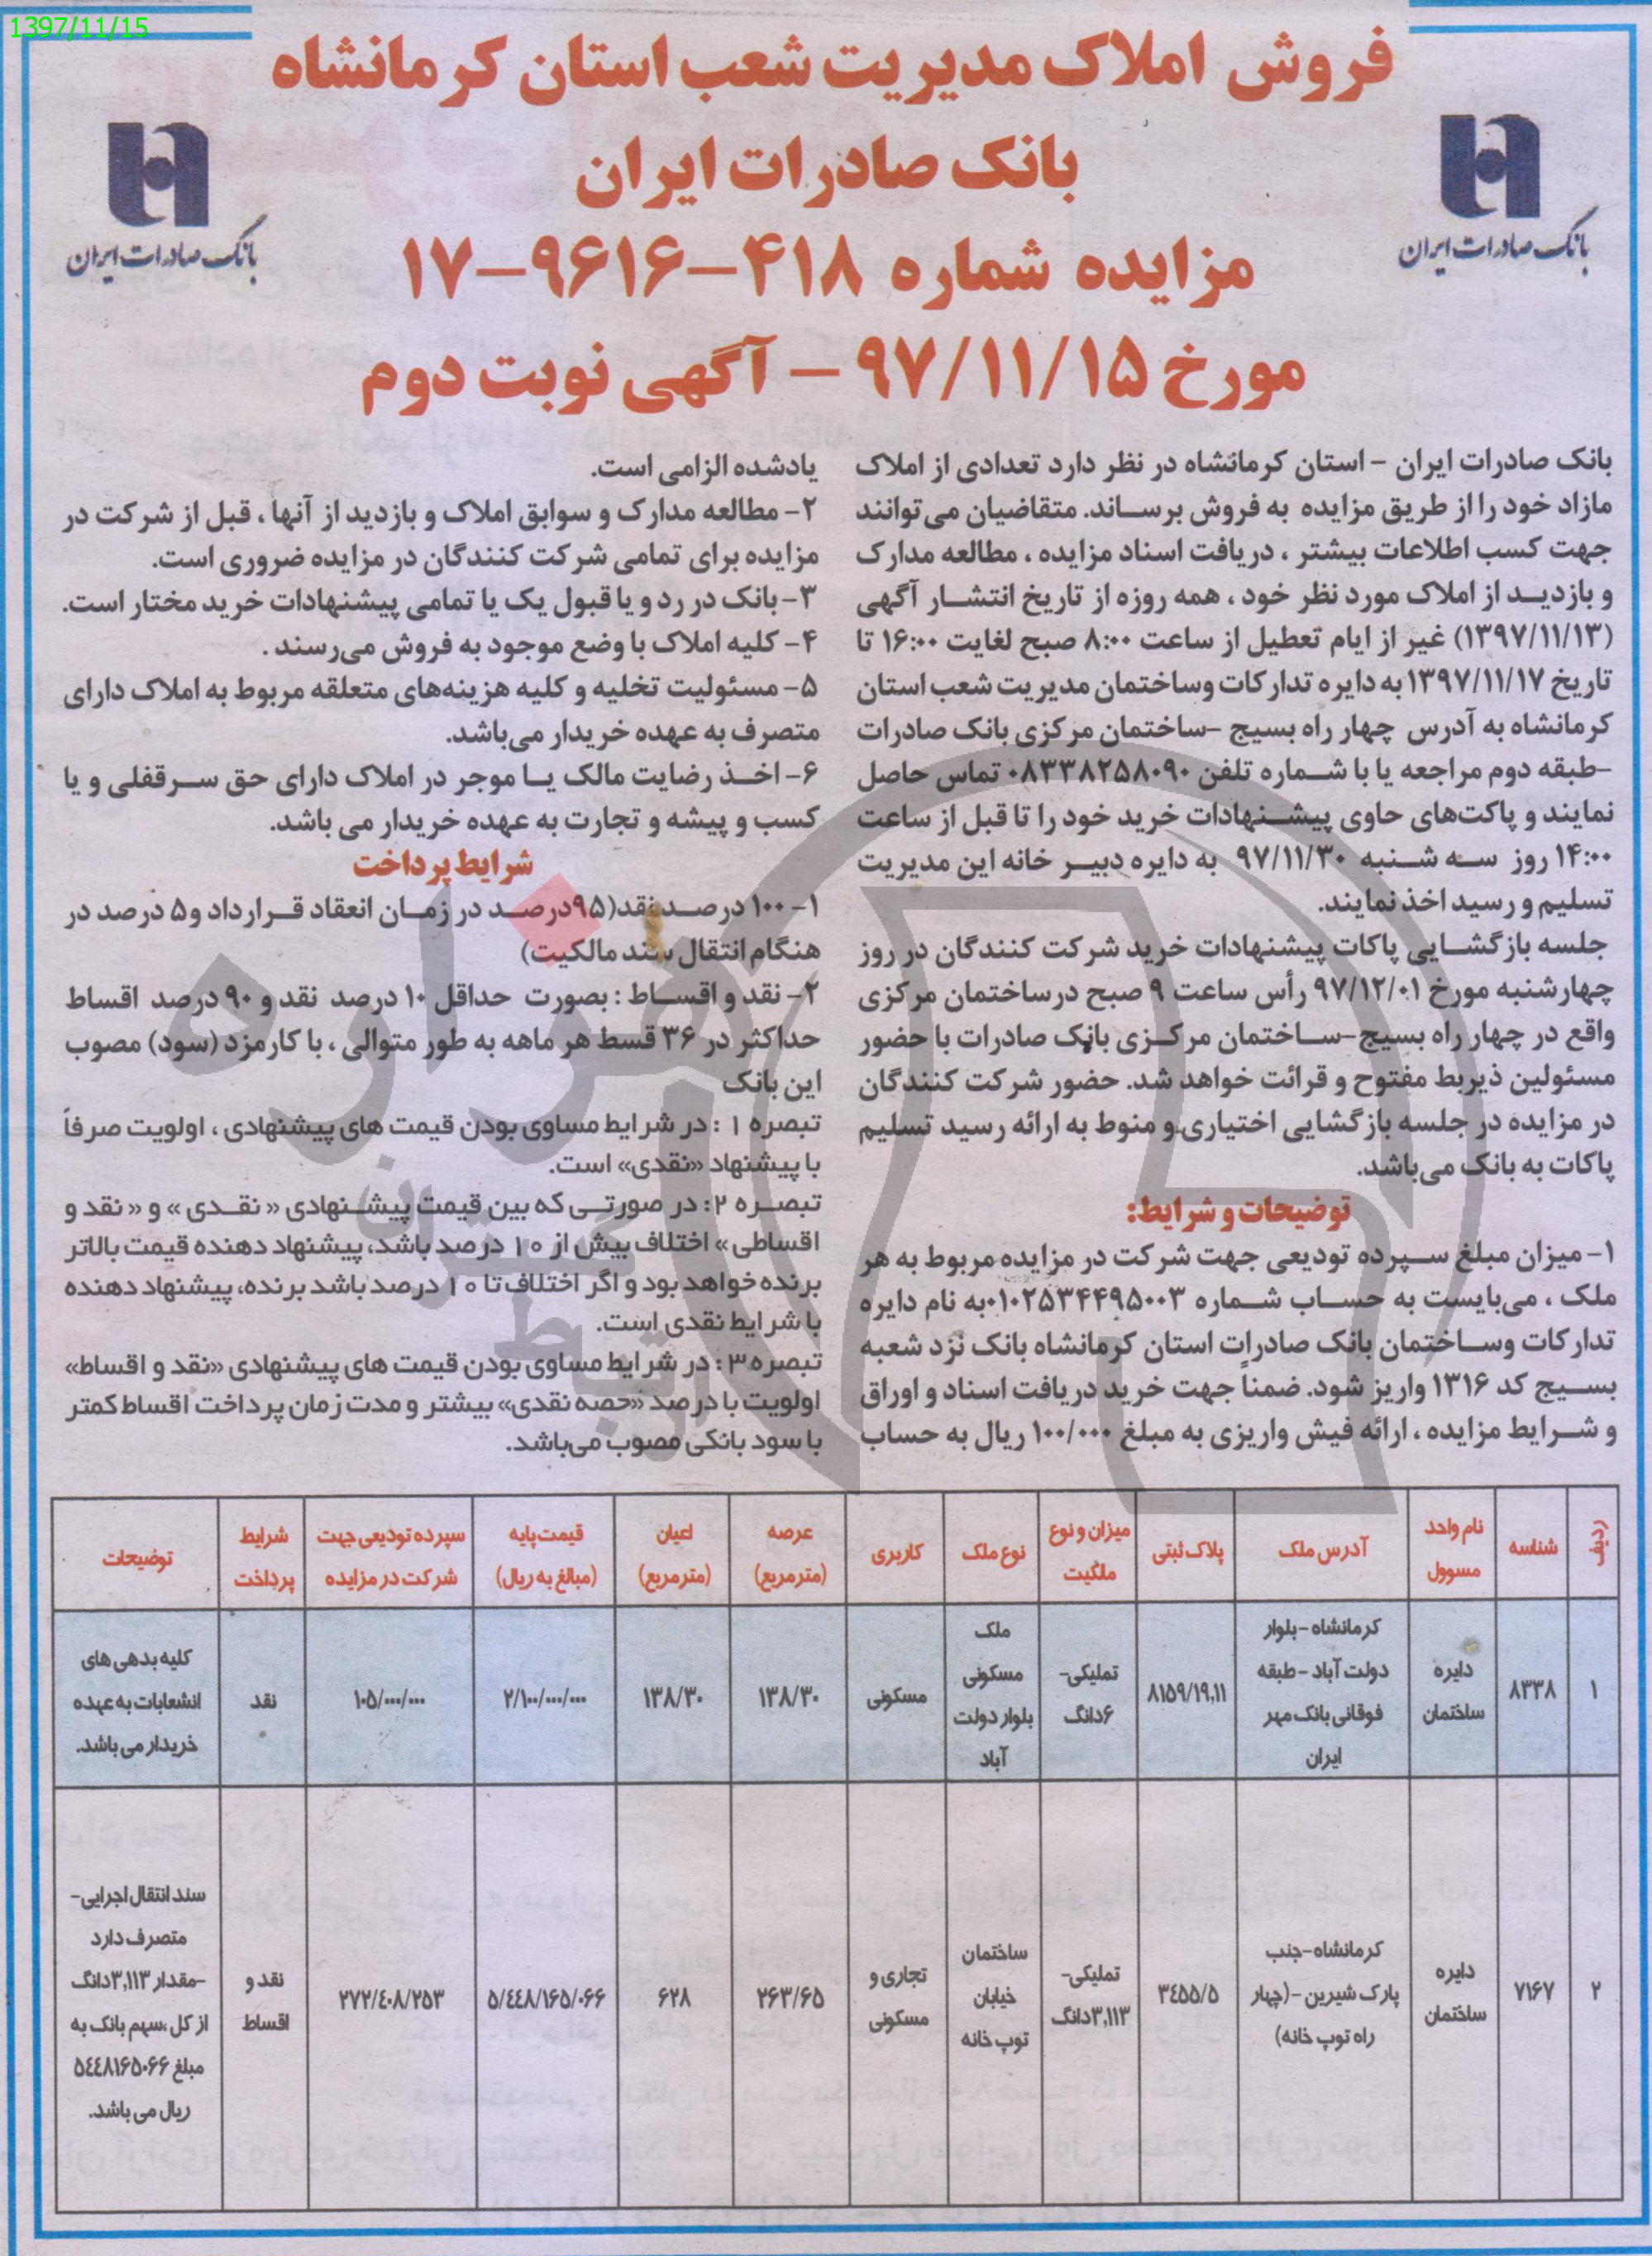 1397/11/15
فروش املاک مدیریت شعب استان کرمانشاه
بانک صادرات ایران
مزایده شماره ۴۱۸-۹۶۱۶-۱۷
مورخ ۹۷/۱۱/۱۵ - آگهی نوبت دوم
بانک صادرات ایران
بانک صادرات ایران
بانک صادرات ایران - استان کرمانشاه در نظر دارد تعدادی از املاک
مازاد خود را از طریق مزایده به فروش برساند. متقاضیان می‌توانند
جهت کسب اطلاعات بیشتر ، دریافت اسناد مزایده ، مطالعه مدارک
و بازدید از املاک مورد نظر خود ، همه روزه از تاریخ انتشار آگهی
(۱۳۹۷/۱۱/۱۳) غیر از ایام تعطیل از ساعت ۸:۰۰ صبح لغایت ۱۶:۰۰ تا
تاریخ ۱۳۹۷/۱۱/۱۷ به دایره تدارکات وساختمان مدیریت شعب استان
کرمانشاه به آدرس چهار راه بسیج -ساختمان مرکزی بانک صادرات
-طبقه دوم مراجعه یا با شماره تلفن ۰۸۳۳۸۲۵۸۰۹۰ تماس حاصل
نمایند و پاکت‌های حاوی پیشنهادات خرید خود را تا قبل از ساعت
۱۴:۰۰ روز سه شنبه ۹۷/۱۱/۳۰ به دایره دبیر خانه این مدیریت
تسلیم و رسید اخذ نمایند.
جلسه بازگشایی پاکات پیشنهادات خرید شرکت کنندگان در روز
چهارشنبه مورخ ۹۷/۱۲/۰۱ رأس ساعت ۹ صبح درساختمان مرکزی
واقع در چهار راه بسیج-ساختمان مرکزی بانک صادرات با حضور
مسئولین ذیربط مفتوح و قرائت خواهد شد. حضور شرکت کنندگان
در مزایده در جلسه بازگشایی اختیاری و منوط به ارائه رسید تسلیم
پاکات به بانک می‌باشد.
توضیحات و شرایط:
۱- میزان مبلغ سپرده تودیعی جهت شرکت در مزایده مربوط به هر
ملک ، می‌بایست به حساب شماره ۰۱۰۲۵۳۴۴۹۵۰۰۳ به نام دایره
تدارکات وساختمان بانک صادرات استان کرمانشاه بانک نزد شعبه
بسیج کد ۱۳۱۶ واریز شود. ضمناً جهت خرید دریافت اسناد و اوراق
و شرایط مزایده ، ارائه فیش واریزی به مبلغ ۱۰۰/۰۰۰ ریال به حساب
یادشده الزامی است.
۲- مطالعه مدارک و سوابق املاک و بازدید از آنها ، قبل از شرکت در
مزایده برای تمامی شرکت کنندگان در مزایده ضروری است.
۳- بانک در رد و یا قبول یک یا تمامی پیشنهادات خرید مختار است.
۴- کلیه املاک با وضع موجود به فروش می‌رسند .
۵- مسئولیت تخلیه و کلیه هزینه‌های متعلقه مربوط به املاک دارای
متصرف به عهده خریدار می‌باشد.
۶- اخذ رضایت مالک یا موجر در املاک دارای حق سرقفلی و یا
کسب و پیشه و تجارت به عهده خریدار می باشد.
شرایط پرداخت
۱- ۱۰۰ درصد نقد(۹۵درصد در زمان انعقاد قرارداد و۵ درصد در
هنگام انتقال سند مالکیت)
۲- نقد و اقساط : بصورت حداقل ۱۰ درصد نقد و ۹۰ درصد اقساط
حداکثر در ۳۶ قسط هر ماهه به طور متوالی ، با کارمزد (سود) مصوب
این بانک
تبصره ۱ : در شرایط مساوی بودن قیمت های پیشنهادی ، اولویت صرفاً
با پیشنهاد «نقدی» است.
تبصره ۲: در صورتی که بین قیمت پیشنهادی « نقدی » و « نقد و
اقساطی» اختلاف بیش از ۱۰ درصد باشد، پیشنهاد دهنده قیمت بالاتر
برنده خواهد بود و اگر اختلاف تا ۱۰ درصد باشد برنده، پیشنهاد دهنده
با شرایط نقدی است.
تبصره۳: در شرایط مساوی بودن قیمت های پیشنهادی «نقد و اقساط»
اولویت با درصد «حصه نقدی» بیشتر و مدت زمان پرداخت اقساط کمتر
با سود بانکی مصوب می‌باشد.
ردیف
شناسه
نام واحد
مسوول
آدرس ملک
پلاک ثبتی
میزان و نوع
مالکیت
نوع ملک
کاربری
عرصه
(مترمربع)
اعیان
(مترمربع)
قیمت پایه
(مبالغ به ریال)
سپرده تودیعی جهت
شرکت در مزایده
شرایط
پرداخت
توضیحات
۱
۸۳۳۸
دایره
ساختمان
کرمانشاه -بلوار
دولت آباد -طبقه
فوقانی بانک مهر
ایران
۸۱۵۹/۱۹,۱۱
تملیکی-
۶دانگ
ملک
مسکونی
بلوار دولت
آباد
مسکونی
۱۳۸/۳۰
۱۳۸/۳۰
۲/۱۰۰/۰۰۰/۰۰۰
۱۰۵/۰۰۰/۰۰۰
نقد
کلیه بدهی های
انشعابات به عهده
خریدار می باشد.
۲
۷۱۶۷
دایره
ساختمان
کرمانشاه-جنب
پارک شیرین -(چهار
راه توپ خانه)
۳۴۵۵/۵
تملیکی-
۳,۱۱۳دانگ
ساختمان
خیابان
توپ خانه
تجاری و
مسکونی
۲۶۳/۶۵
۶۲۸
۵/۴۴۸/۱۶۵/۰۶۶
۲۷۲/۴۰۸/۲۵۳
نقد و
اقساط
سند انتقال اجرایی-
متصرف دارد
-مقدار ۳,۱۱۳دانگ
از کل ،سهم بانک به
مبلغ ۵۴۴۸۱۶۵۰۶۶
ریال می باشد.